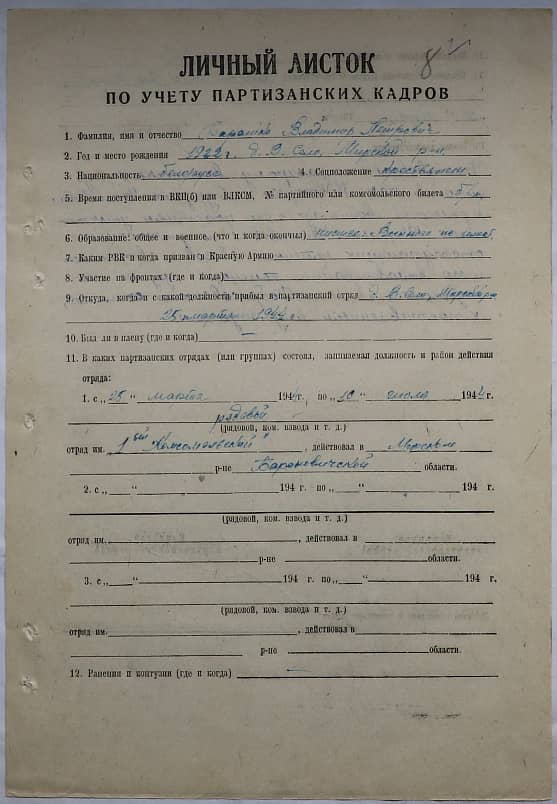 8
ЛИЧНЫЙ ЛИСТОК
ПО УЧЕТУ ПАРТИЗАНСКИХ КАДРОВ
1. Фамилия, имя и отчество Владимир Петрович
2. Год и место рождения 1922 г. д. В. Село, Мирский р-н
3. Национальность белорус 4. Соцположение
5. Время поступления в ВКП(б) или ВЛКСМ, № партийного или комсомольского билета б/п
6. Образование: общее и военное (что и когда окончил) низшее. Военного не имеет
7. Каким РВК и когда призван в Красную Армию
8. Участие на фронтах (где и когда)
9. Откуда, когда и с какой должности прибыл в партизанский отряд д. В. Село, Мирского р-на
25 марта 1944
10. Был ли в плену (где и когда) —
11. В каких партизанских отрядах (или группах) состоял, занимаемая должность и район действия
отряда:
1. с „25" марта 1944 г. по „10" июля 1944 г.
рядовой
(рядовой, ком. взвода и т. д.)
отряд им. 1-ый "Комсомольский", действовал в Мирском
р-не Барановичской области.
2. с „ " 194 г. по „ " 194 г.
(рядовой, ком. взвода и т. д.)
отряд им. , действовал в
р-не области.
3. с „ " 194 г. по „ " 194 г.
(рядовой, ком. взвода и т. д.)
отряд им. , действовал в
р-не области.
12. Ранения и контузии (где и когда) —